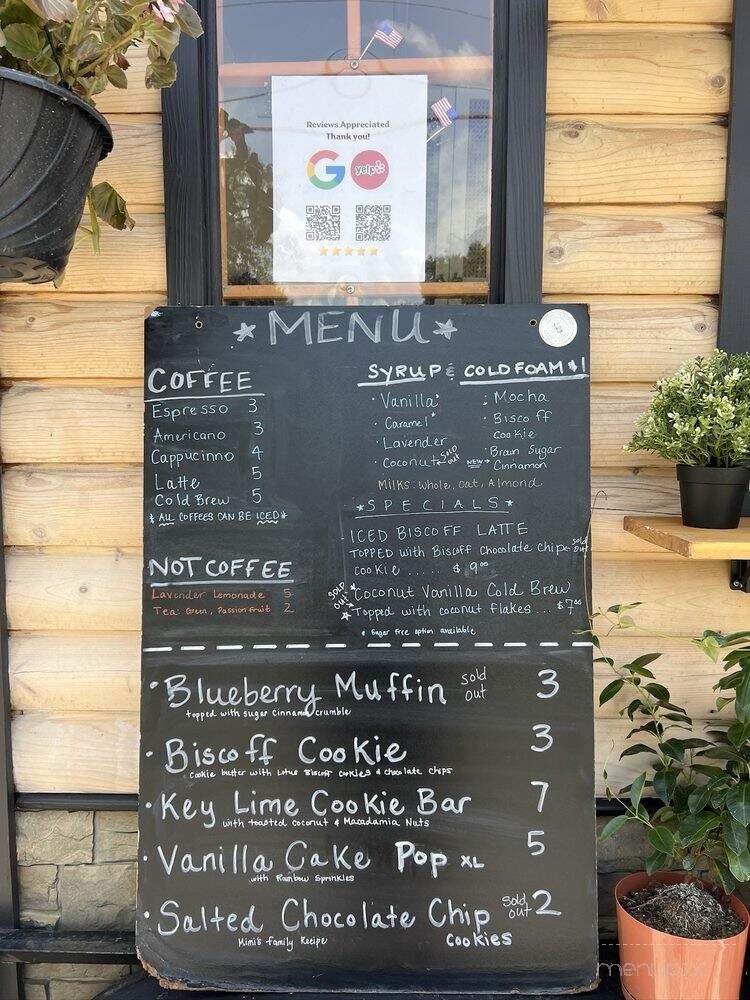 Reviews Appreciated
Thank you!
G yelp
MENU
COFFEE
Espresso 3
Americano 3
Cappucinno 4
Latte 5
Cold Brew 5
* ALL COFFEES CAN BE ICED *
NOT COFFEE
Lavender Lemonade 5
Tea Green, Passion fruit 2
SYRUP & COLD FOAM $1
· Vanilla*
· Caramel*
· Lavender
· Coconut sold out
· Mocha
· Biscoff
cookie
NEW → · Brown Sugar
Cinnamon
Milks: whole, oat, Almond
* SPECIALS *
ICED BISCOFF LATTE
TOPPED with Biscoff Chocolate chip sold out
cookie ..... $ 9.00
sold out Coconut Vanilla Cold Brew
Topped with coconut flakes ... $7.00
* Sugar free option available
· Blueberry Muffin sold out 3
topped with sugar cinnamon crumble
· Biscoff Cookie 3
cookie butter with Lotus Biscoff cookies & chocolate chips
· Key Lime Cookie Bar 7
with toasted coconut & Macadamia Nuts
· Vanilla Cake Pop XL 5
with Rainbow Sprinkles
· Salted Chocolate Chip sold out 2
Mimi's family Recipe cookies